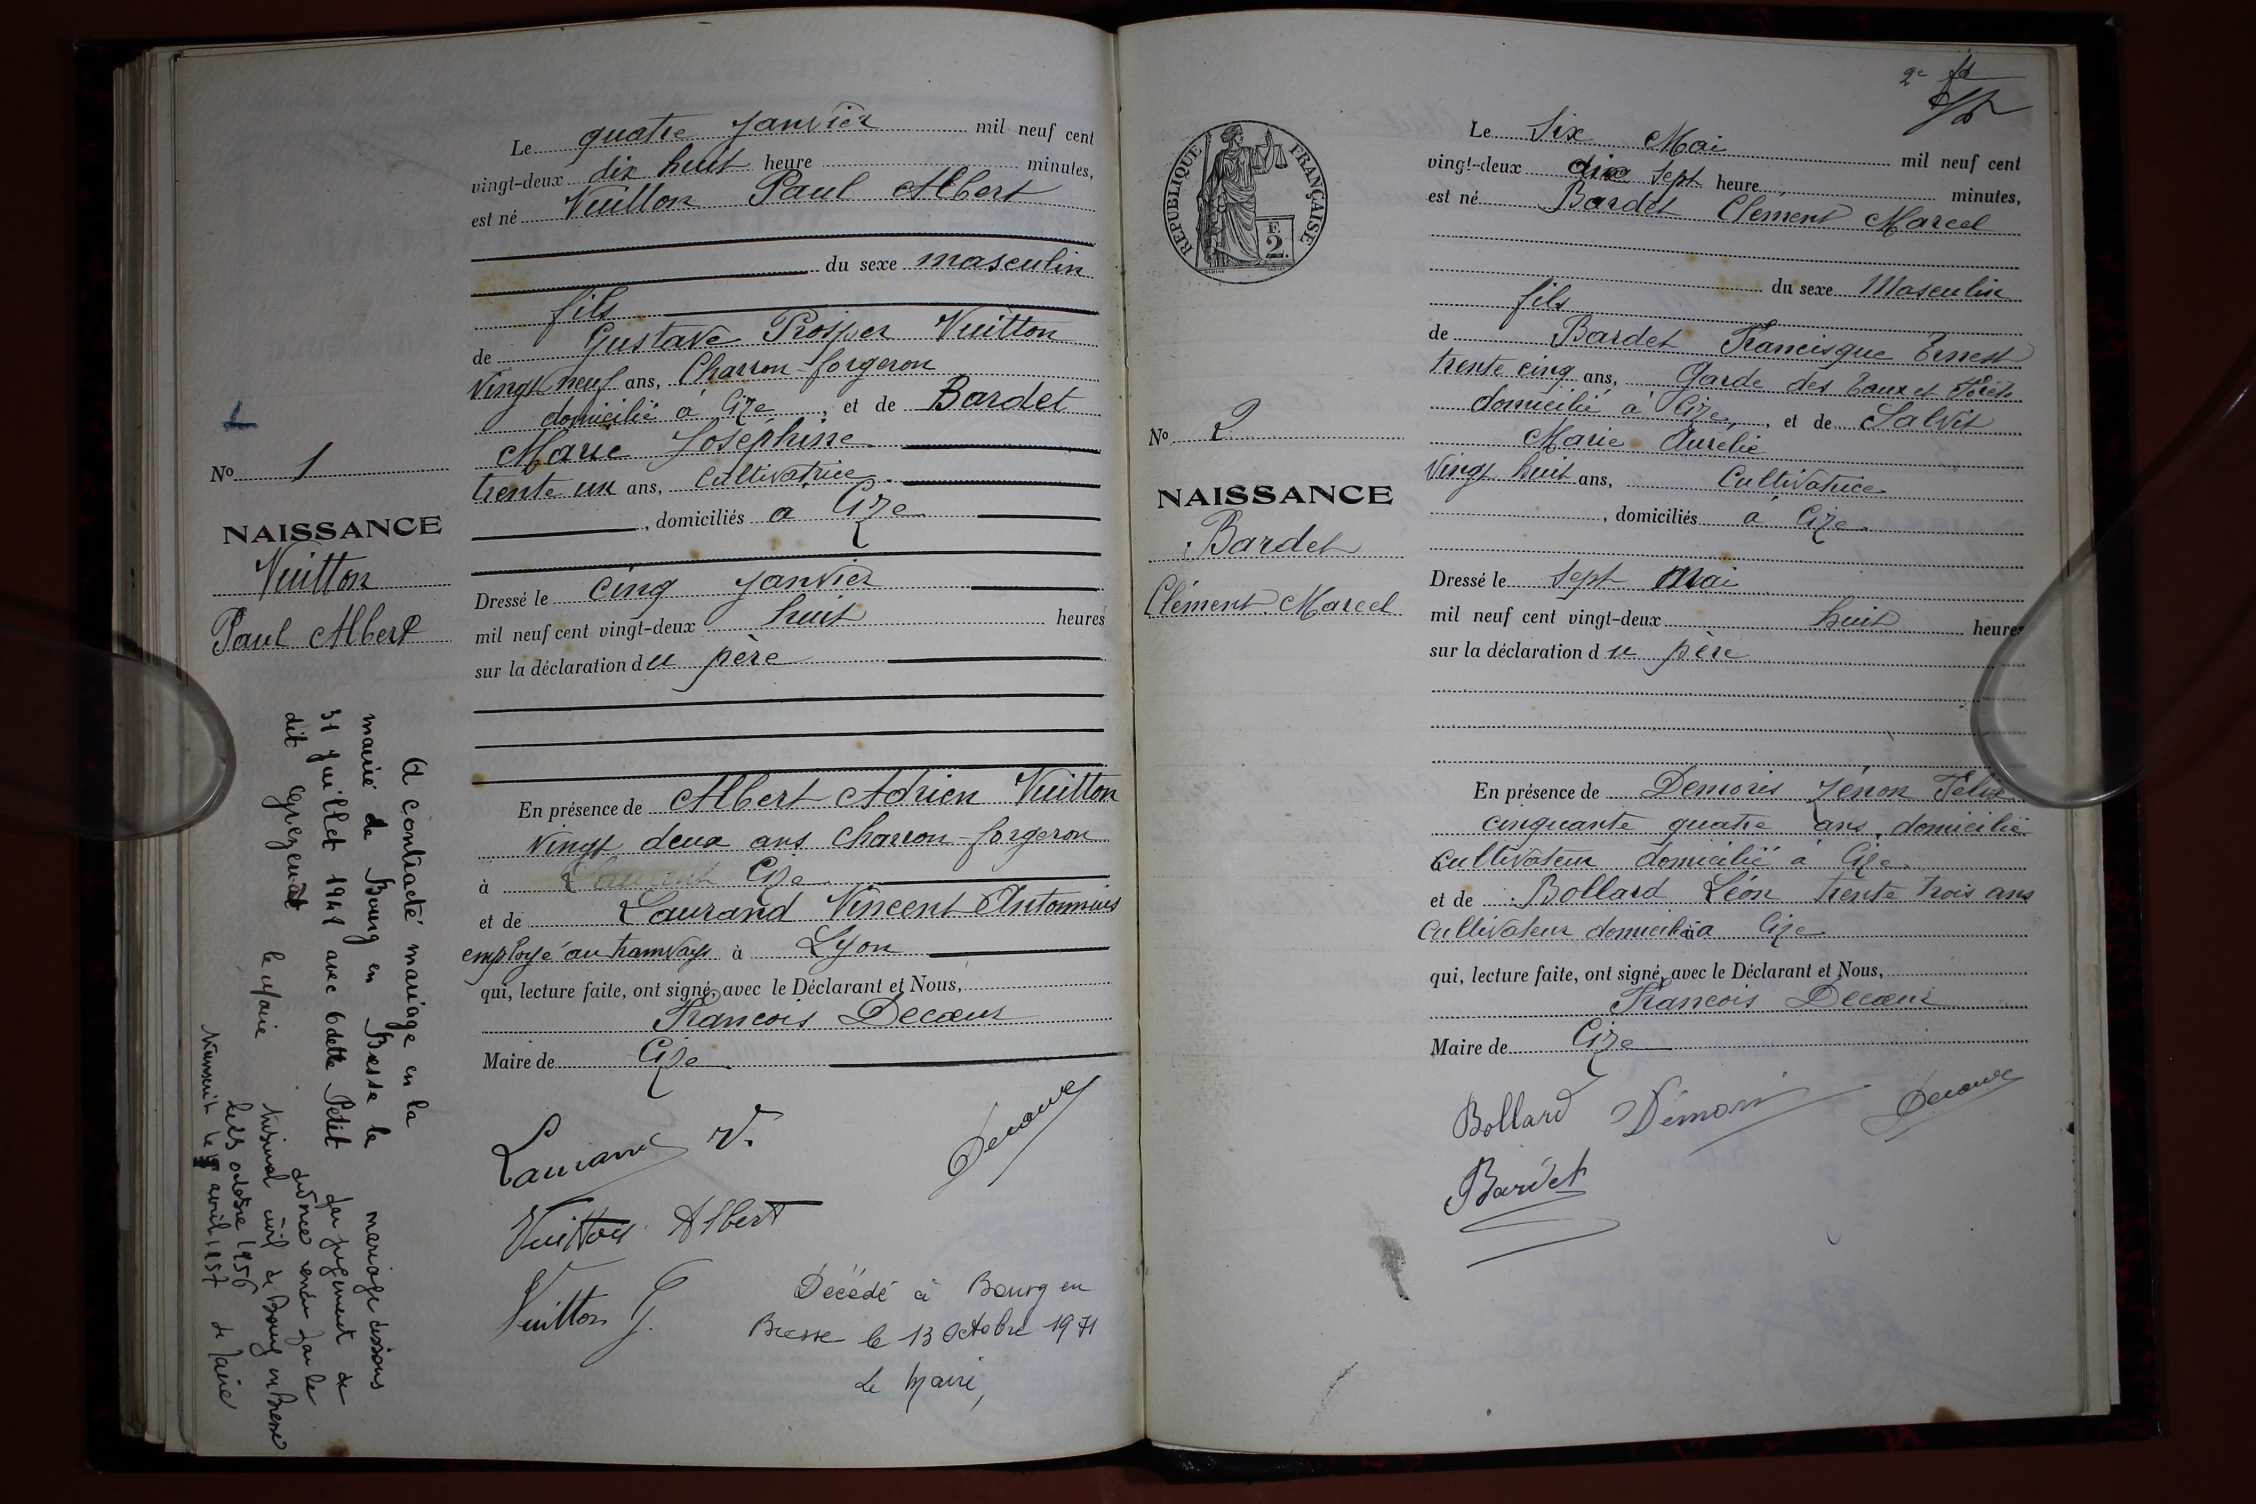 Le quatre Janvier mil neuf cent
vingt-deux dix huit heure minutes,
est né Vuitton Paul Albert
du sexe masculin
fils
de Gustave Prosper Vuitton
vingt neuf ans, Charron-forgeron
domicilié à Cize, et de Bardet
Marie Joséphine
trente un ans, cultivatrice
, domiciliés à Cize
Dressé le cinq Janvier
mil neuf cent vingt-deux huit heures
sur la déclaration du père
En présence de Albert Adrien Vuitton
vingt deux ans charron-forgeron
à Cize
et de Laurand Vincent Antonnius
employé au tramways à Lyon
qui, lecture faite, ont signé, avec le Déclarant et Nous,
François Decœur
Maire de Cize
Laurand V.
Decœur
Vuitton Albert
Vuitton G.
Décédé à Bourg en
Bresse le 13 Octobre 1971
Le Maire,
1
No 1
NAISSANCE
Vuitton
Paul Albert
A contracté mariage en la
mairie de Bourg en Bresse le
31 Juillet 1941 avec Odette Petit
dit
le Maire
mariage dissous
par jugement de
divorce rendu par le
tribunal civil de Bourg en Bresse
le 25 octobre 1956
Transcrit le avril 1957 le Maire
2e
Le Six Mai mil neuf cent
vingt-deux dix sept heure minutes,
est né Bardet Clément Marcel
du sexe Masculin
fils
de Bardet Francisque Ernest
trente cinq ans, Garde des Eaux et Forêts
domicilié à Cize, et de Salvit
Marie Aurélie
Vingt huit ans, Cultivatrice
, domiciliés à Cize
Dressé le sept Mai
mil neuf cent vingt-deux huit heures
sur la déclaration du père
En présence de Demoris Zénon Félix
cinquante quatre ans, domicilié
cultivateur domicilié à Cize
et de Bollard Léon trente trois ans
cultivateur domicilié à Cize
qui, lecture faite, ont signé, avec le Déclarant et Nous,
François Decœur
Maire de Cize
Bollard Démoris Decœur
Bardet
RÉPUBLIQUE FRANÇAISE
F. 2.
No 2
NAISSANCE
Bardet
Clément Marcel